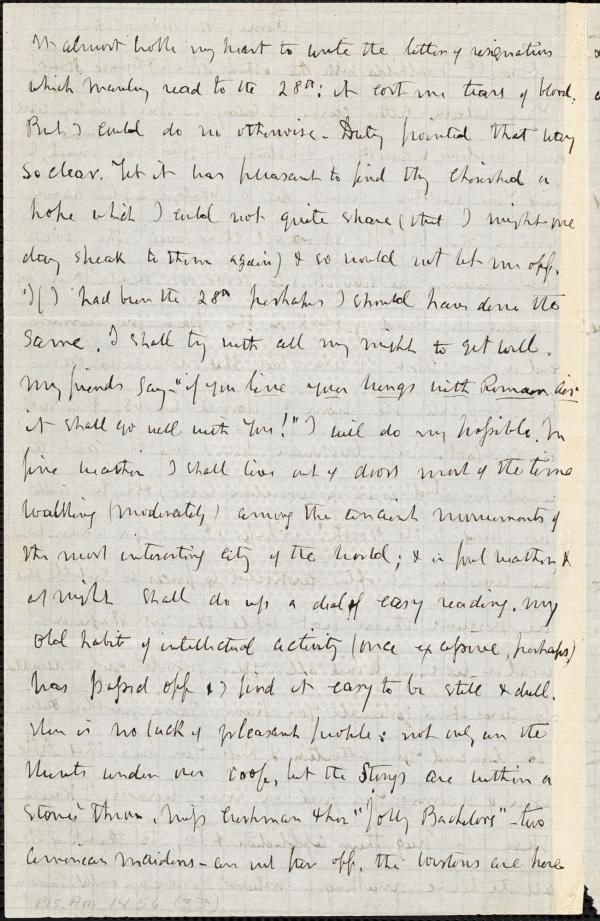 It almost broke my heart to write the letter of resignation
which Manley read to the 28th: it cost me tears of blood.
But I could do no otherwise — Duty pointed that way
so clear. Yet it was pleasant to find they cherished a
hope which I could not quite share (that I might one
day speak to them again) & so would not let me off.
If I had been the 28th perhaps I should have done the
same. I shall try with all my might to get well.
My friends say — "if you line your lungs with Roman air
it shall go well with you!" I will do my possible. In
fine weather I shall live out of doors most of the time
walking (moderately) among the ancient monuments of
the most interesting city of the world; & in foul weather, &
at night shall do up a deal of easy reading. My
old habit of intellectual activity (once excessive, perhaps)
has passed off & I find it easy to be still & dull.
There is no lack of pleasant people: not only are the
Hunts under our roof, but the Storys are within a
stone's throw, Miss Cushman & her "Jolly Bachelors" — two
American maidens — are not far off. The are here
Ms. Am 1456 (33)